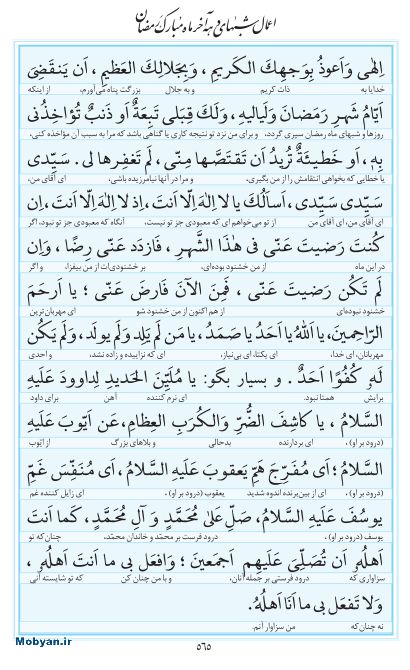 اعمال شبهای دهه آخر ماه مبارک رمضان
اِلٰهی وَاَعوذُ بِوَجهِكَ الكَريمِ ، وَبِجَلالِكَ العَظيمِ ، اَن يَنقَضِیَ
خدایا به ذات کریم و به جلال بزرگت پناه می‌آورم، از اینکه
اَيّامُ شَهرِ رَمَضانَ وَلَياليهِ، وَلَكَ قِبَلی تَبِعَةٌ اَو ذَنبٌ تُؤاخِذُنی
روزها و شبهای ماه رمضان سپری گردد، و برای من نزد تو نتیجه کاری یا گناهی باشد که مرا به سبب آن مؤاخذه کنی،
بِهِ، اَو خَطيئَةٌ تُريدُ اَن تَقتَصَّها مِنّی ، لَم تَغفِرها لی . سَيِّدی
یا خطایی که بخواهی انتقامش را از من بگیری، و مرا در آنها نیامرزیده باشی، ای آقای من،
سَيِّدی سَيِّدی، اَسأَلُكَ يا لا اِلٰهَ اِلّا اَنتَ، اِذ لا اِلٰهَ اِلّا اَنتَ، اِن
ای آقای من، ای آقای من، از تو می‌خواهم ای که معبودی جز تو نیست، آنگاه که معبودی جز تو نبود، اگر
كُنتَ رَضيتَ عَنّی فی هٰذَا الشَّهرِ ، فَازدَد عَنّی رِضًا ، وَاِن
در این ماه از من خشنود بوده‌ای، بر خشنودی‌ات از من بیفزا، و اگر
لَم تَكُن رَضيتَ عَنّی ، فَمِنَ الآنَ فَارضَ عَنّی ؛ يا اَرحَمَ
خشنود نبوده‌ای از هم اکنون از من خشنود شو ای مهربان‌ترین
الرّاحِمينَ، يا اَللهُ يا اَحَدُ يا صَمَدُ، يا مَن لَم يَلِد وَلَم يولَد، وَلَم يَكُن
مهربانان، ای خدا، ای یکتا، ای بی‌نیاز، ای که نزاییده و زاده نشد، و احدی
لَهُ كُفُوًا اَحَدٌ . و بسیار بگو: يا مُلَيِّنَ الحَديدِ لِداوودَ عَلَيهِ
برایش همتا نبود. ای نرم کننده آهن برای داود
السَّلامُ ، يا كاشِفَ الضُّرِّ وَالكُرَبِ العِظامِ، عَن اَيّوبَ عَلَيهِ
(درود بر او) ، ای بردارنده بدحالی و بلاهای بزرگ از ایّوب
السَّلامُ ؛ اَی مُفَرِّجَ هَمِّ يَعقوبَ عَلَيهِ السَّلامُ ، اَی مُنَفِّسَ غَمِّ
(درود بر او) ، ای از بین‌برنده اندوه شدید یعقوب (درود بر او) ، ای زایل کننده غم
يوسُفَ عَلَيهِ السَّلامُ، صَلِّ عَلیٰ مُحَمَّدٍ وَ آلِ مُحَمَّدٍ، كَما اَنتَ
یوسف (درود بر او) ، درود فرست بر محمّد و خاندان محمّد، چنان‌که تو
اَهلُهُ اَن تُصَلِّیَ عَلَيهِم اَجمَعينَ؛ وَافعَل بی ما اَنتَ اَهلُهُ ،
سزاواری که درود فرستی بر جمله آنان، و با من چنان کن که تو شایسته آنی
وَلا تَفعَل بی ما اَنَا اَهلُهُ.
نه چنان‌که من سزاوار آنم.
Mobyan.ir
٥٦٥